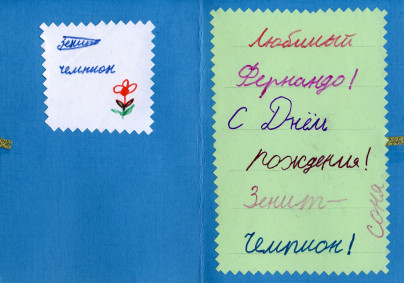 Зенит
чемпион
Любимый
Фернандо!
С Днём
рождения!
Зенит-
Чемпион!
соня